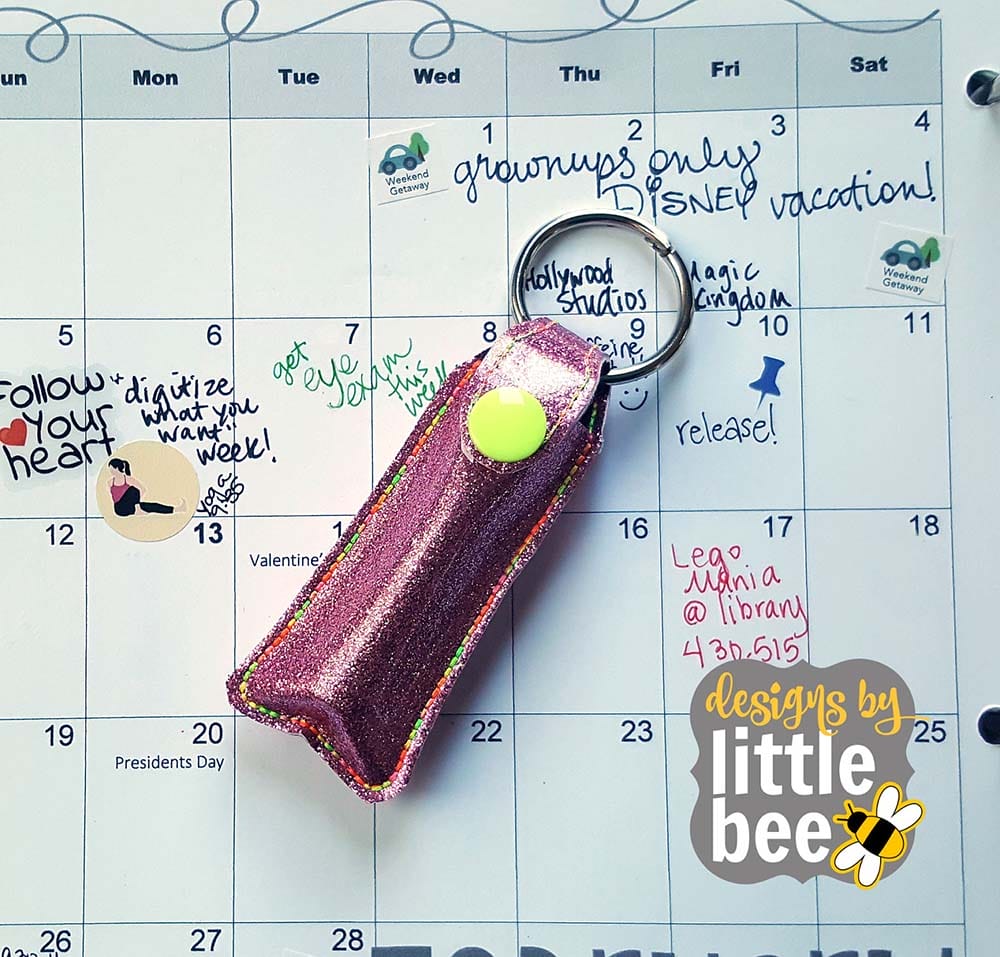 Mon Tue Wed Thu Fri Sat
1 2 3 4
Weekend
Getaway
grownups only
DISNEY vacation!
Weekend
Getaway
Hollywood
Studios
Magic
Kingdom
5 6 7 8 9 10 11
Follow
Your
heart
digitize
what you
want"
week!
yoga
get
eye
exam
this
week
release!
12 13 16 17 18
Valentine'
Lego
Mania
@ library
430-515
19 20 22 23 25
Presidents Day
designs by
little
bee
26 27 28